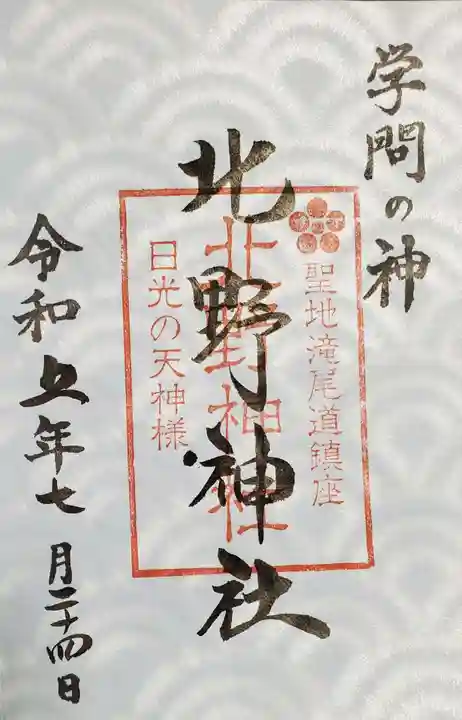 学問の神
聖地滝尾道鎮座
北野神社
北野神社
日光の天神様
令和五年七月二十四日